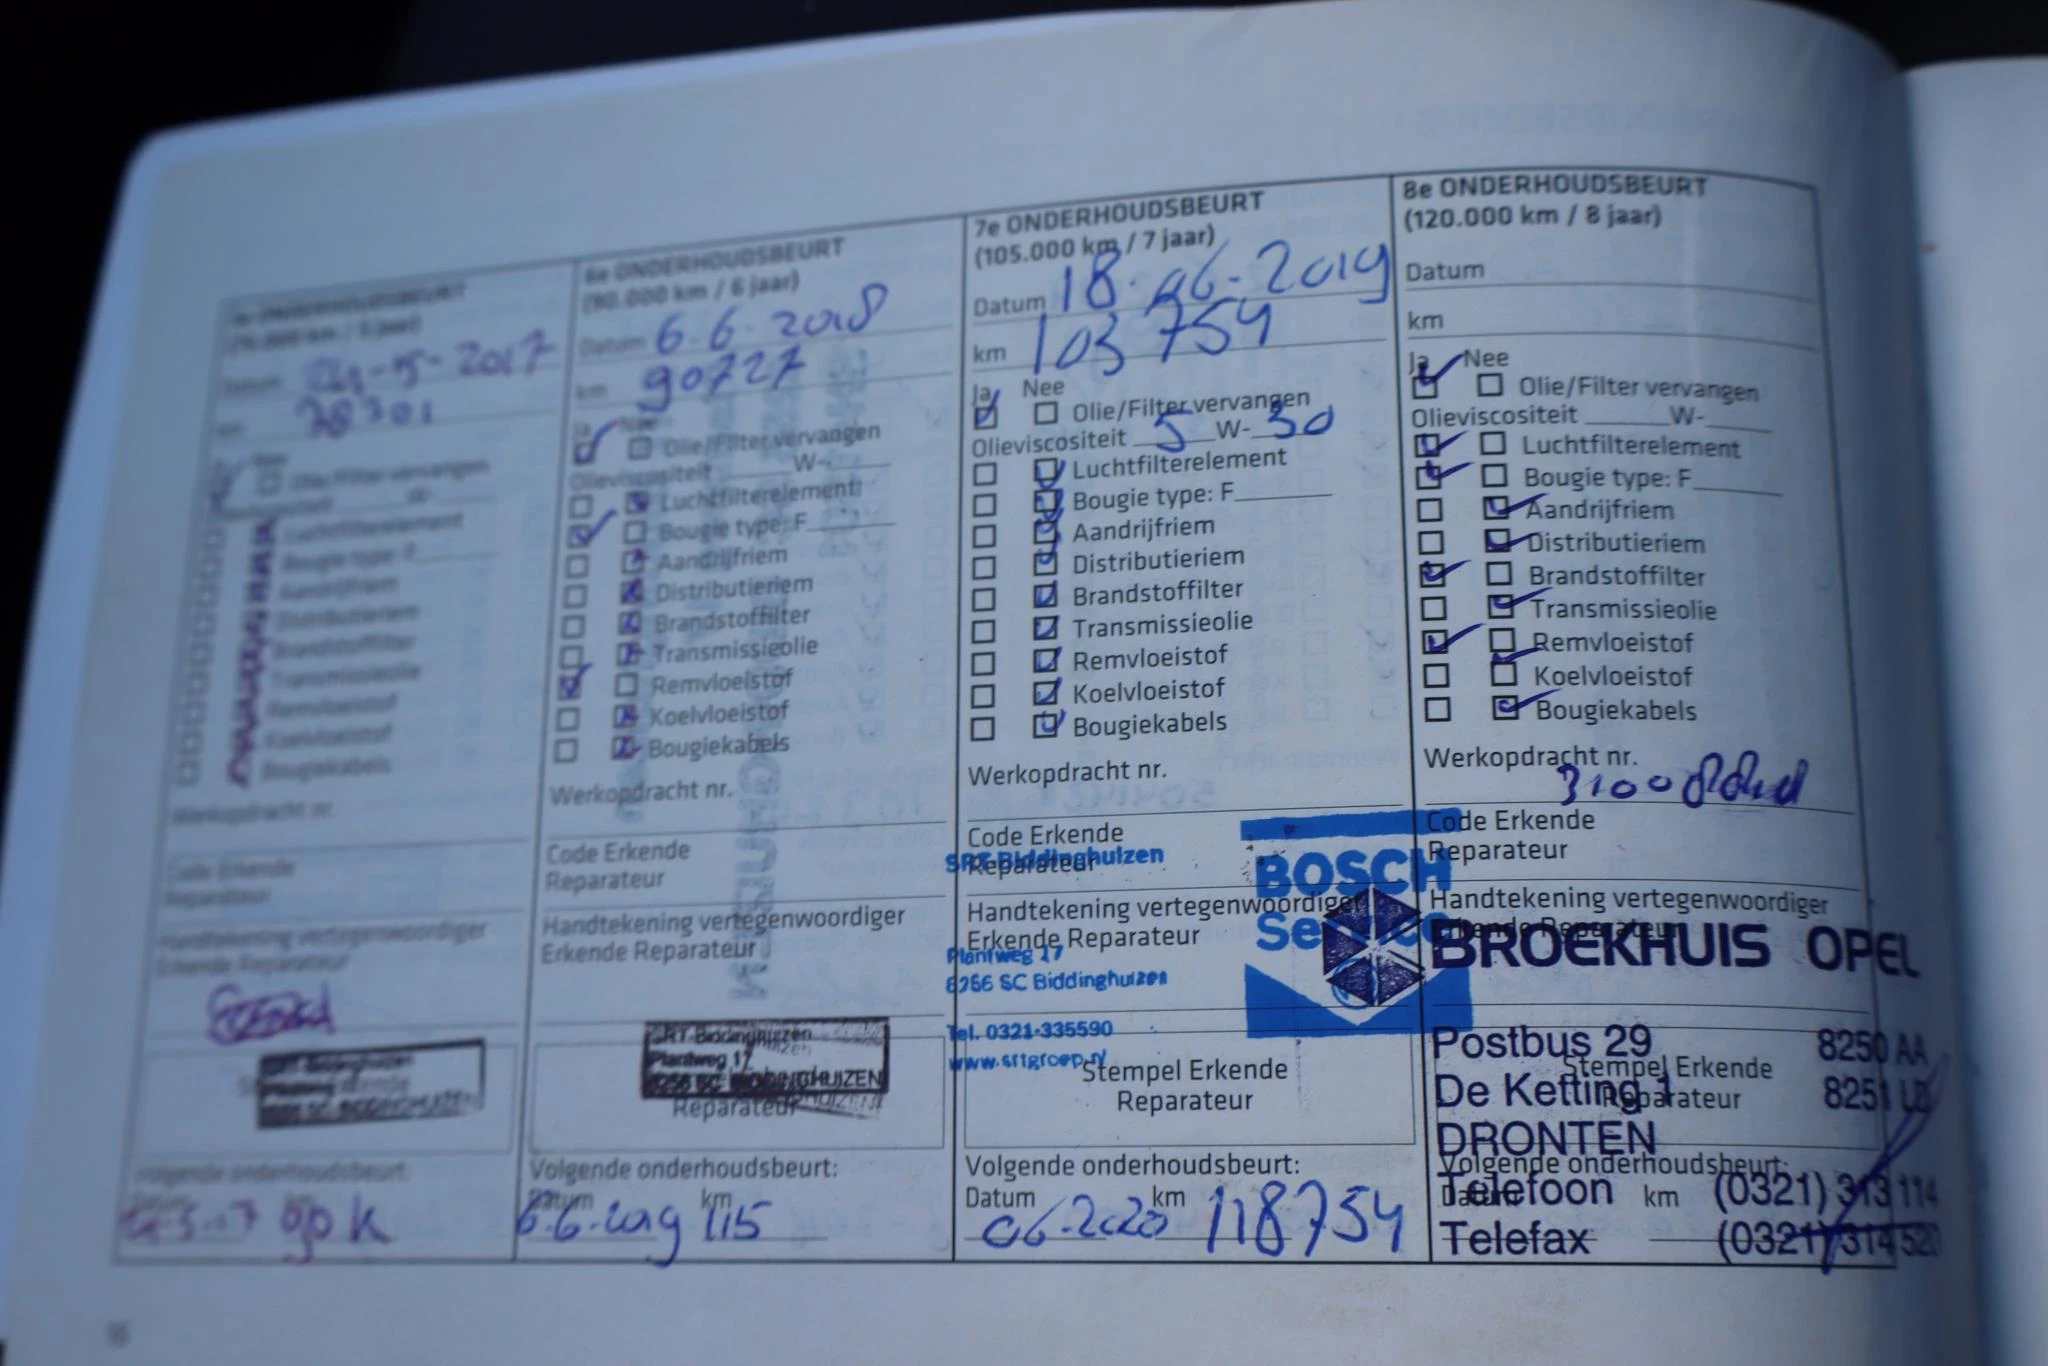 ONDERHOUDSBEURT
-5-2017
Olie/Filter vervangen
W-
Luchtfilterelement
Bougie type: F
Aandrijfriem
Distributieriem
Brandstoffilter
Transmissieolie
Remvloeistof
Koelvloeistof
Bougiekabels
Werkopdracht nr.
Code Erkende
Reparateur
Handtekening vertegenwoordiger
Erkende Reparateur
SRT-Biddinghuizen
8256 SC BIDDINGHUIZEN
Volgende onderhoudsbeurt:
Datum km
90 k
6e ONDERHOUDSBEURT
(90.000 km / 6 jaar)
Datum 6-6-2018
km 90727
Ja Nee
Olie/Filter vervangen
Olieviscositeit W-
Luchtfilterelement
Bougie type: F
Aandrijfriem
Distributieriem
Brandstoffilter
Transmissieolie
Remvloeistof
Koelvloeistof
Bougiekabels
Werkopdracht nr.
Code Erkende
Reparateur
Handtekening vertegenwoordiger
Erkende Reparateur
SRT-Biddinghuizen
Plantweg 17
8256 SC BIDDINGHUIZEN
Reparateur
Volgende onderhoudsbeurt:
Datum km
6-6-2019 115
7e ONDERHOUDSBEURT
(105.000 km / 7 jaar)
Datum 18-06-2019
km 103754
Ja Nee
Olie/Filter vervangen
Olieviscositeit 5 W- 30
Luchtfilterelement
Bougie type: F
Aandrijfriem
Distributieriem
Brandstoffilter
Transmissieolie
Remvloeistof
Koelvloeistof
Bougiekabels
Werkopdracht nr.
Code Erkende
Reparateur
SRT-Biddinghuizen
BOSCH
Service
Handtekening vertegenwoordiger
Erkende Reparateur
Plantweg 17
8256 SC Biddinghuizen
Tel. 0321-335590
www.srtgroep.nl
Stempel Erkende
Reparateur
Volgende onderhoudsbeurt:
Datum km
06-2020 118754
8e ONDERHOUDSBEURT
(120.000 km / 8 jaar)
Datum
km
Ja Nee
Olie/Filter vervangen
Olieviscositeit W-
Luchtfilterelement
Bougie type: F
Aandrijfriem
Distributieriem
Brandstoffilter
Transmissieolie
Remvloeistof
Koelvloeistof
Bougiekabels
Werkopdracht nr.
Code Erkende
Reparateur
Handtekening vertegenwoordiger
Erkende Reparateur
BROEKHUIS OPEL
Postbus 29 8250 AA
Stempel Erkende
De Ketting 1 8251
Reparateur
DRONTEN
Volgende onderhoudsbeurt:
Datum km
Telefoon (0321) 313 114
Telefax (0321) 314 520